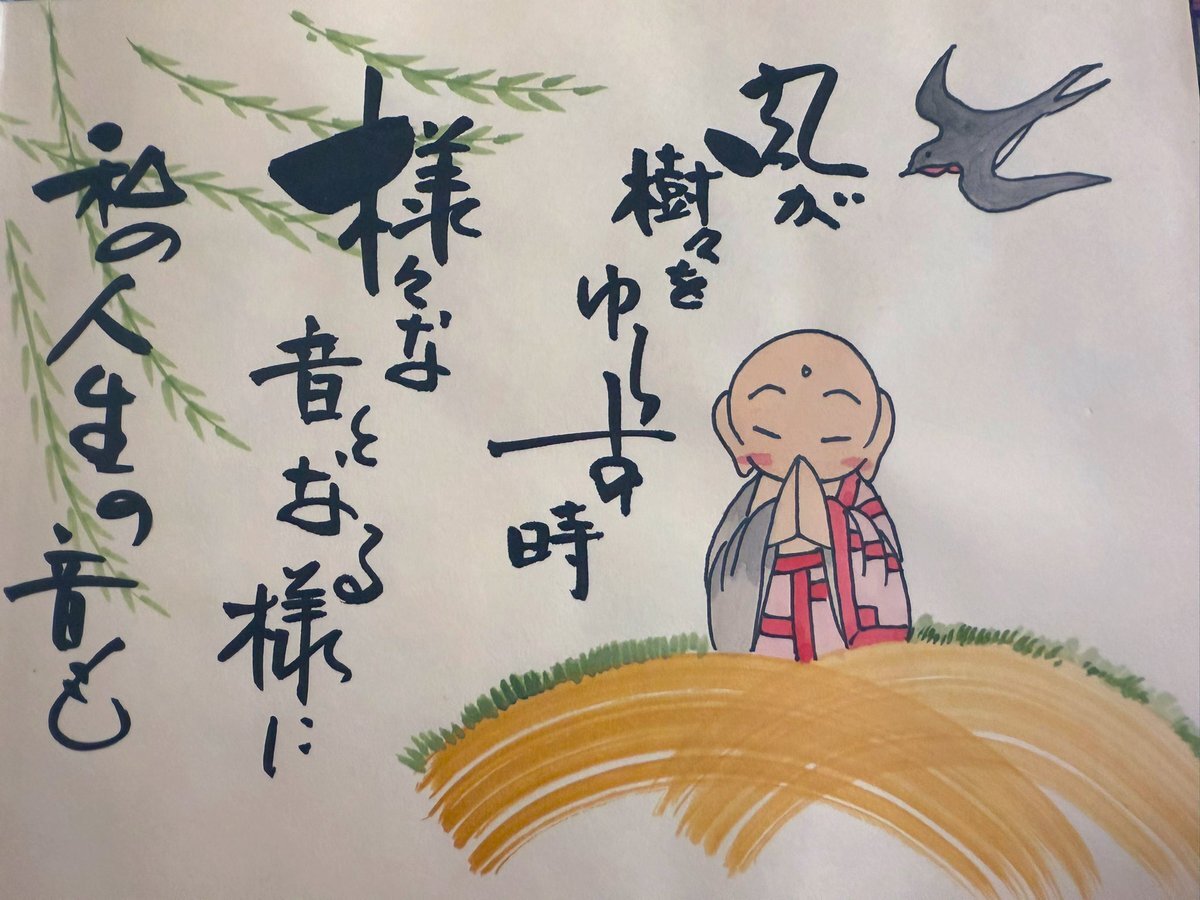 風が
樹々を
ゆらす
時
様々な
音となる
様に
私の人生の音も